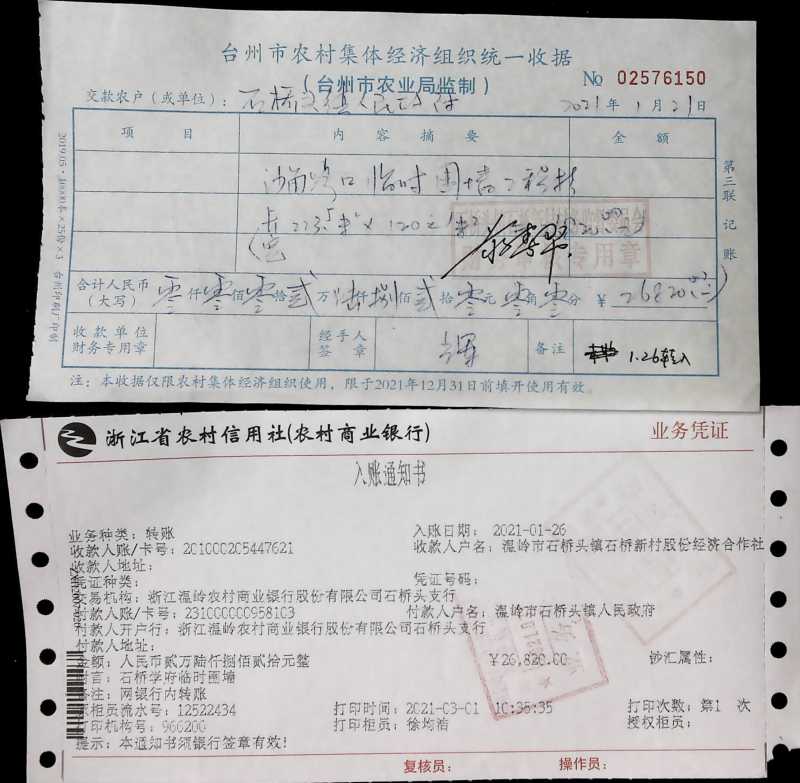 台州市农村集体经济组织统一收据
(台州市农业局监制)
No 02576150
交款农户(或单位):石桥头镇人民政府
2021年1月21日
项 目 内 容 摘 要 金 额
临时围墙工程
223.5米×120元/米
专用章
合计人民币
(大写) 零仟零佰零拾贰万陆仟捌佰贰拾零元零角零分 ¥26820.00
收款单位
财务专用章
经手人
签章
备注
1.26转入
注:本收据仅限农村集体经济组织使用,限于2021年12月31日前填开使用有效。
第三联 记账
浙江省农村信用社(农村商业银行)
业务凭证
入账通知书
业务种类: 转账
入账日期: 2021-01-26
收款人账/卡号: 201000205447621
收款人户名: 温岭市石桥头镇石桥新村股份经济合作社
收款人地址:
凭证种类:
凭证号码:
交易机构: 浙江温岭农村商业银行股份有限公司石桥头支行
付款人账/卡号: 231000000958103
付款人户名: 温岭市石桥头镇人民政府
付款人开户行: 浙江温岭农村商业银行股份有限公司石桥头支行
付款人地址:
金额: 人民币贰万陆仟捌佰贰拾元整
¥26,820.00
钞汇属性:
附言: 石桥学府临时围墙
备注: 网银行内转账
原柜员流水号: 12522434
打印时间: 2021-03-01 10:35:35
打印次数: 第1 次
打印机构号: 966200
打印柜员: 徐均浩
授权柜员:
提示: 本通知书须银行签章有效!
复核员:
操作员: